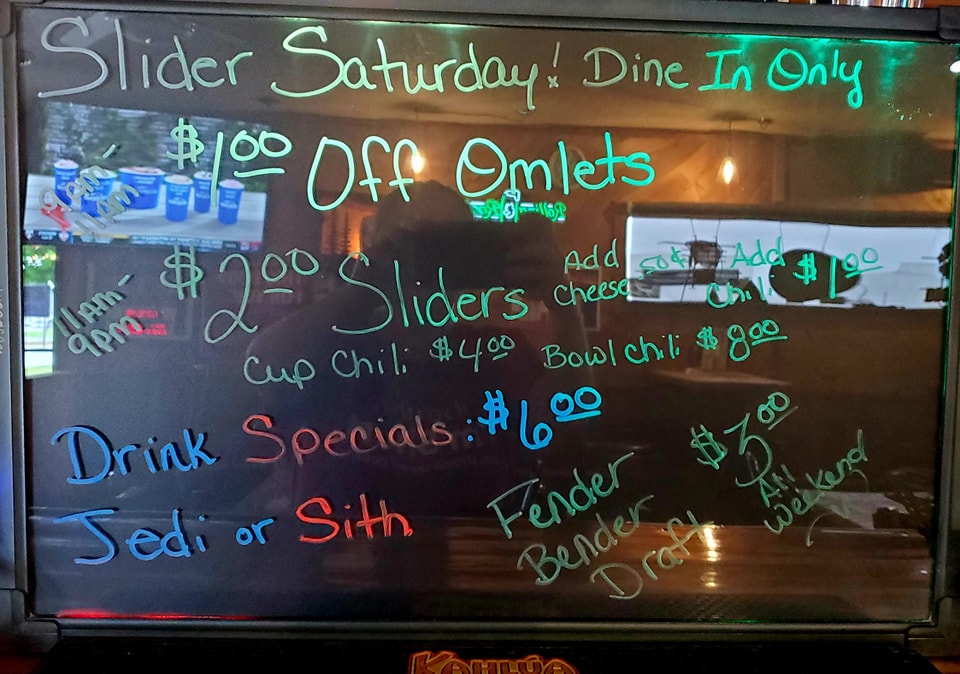 Slider Saturday! Dine In Only
9am-
11am
$1.00 Off Omlets
11am-
9pm
$2.00 Sliders
Add
Cheese 50¢
Add
Chili $1.00
Cup Chili $4.00 Bowl Chili $8.00
Drink Specials: $6.00
Jedi or Sith
Fender
Bender
Draft
$3.00
All
Weekend
KAHLÚA